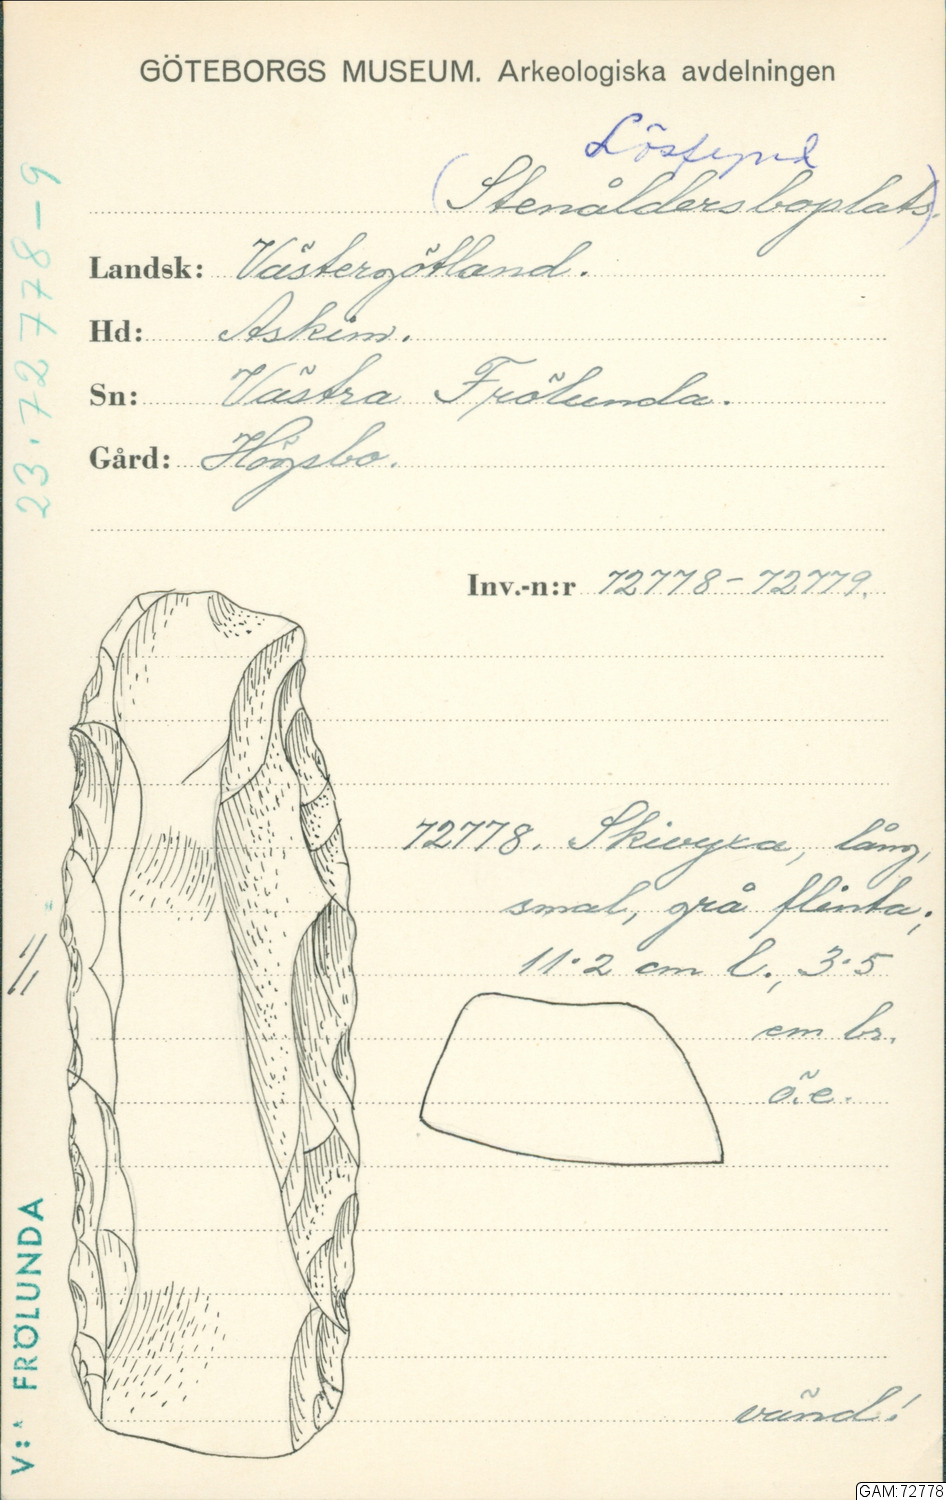 GÖTEBORGS MUSEUM. Arkeologiska avdelningen
Lösfynd
(Stenåldersboplats.)
Landsk: Västergötland.
Hd: Askim.
Sn: Västra Frölunda.
Gård: Högsbo.
Inv.-n:r 72778-72779.
72778. Skivyxa, lång,
smal, grå flinta;
11·2 cm l., 3·5
cm br.
ö.e.
vänd!
23·72778-9
V:* FRÖLUNDA
GAM:72778